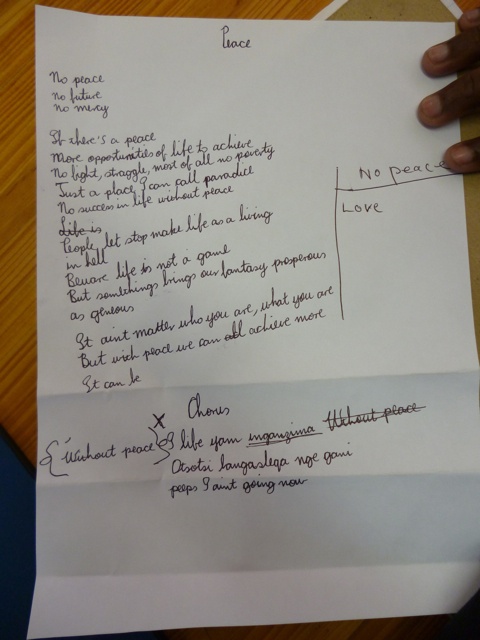 Peace
No peace
no future
no mercy
If there's a peace
More opportunities of life to achieve
No fight, straggle, most of all no poverty
Just a place I can call paradice
No success in life without peace
Life is
People, let stop make life as a living
in hell
Beware life is not a game
But somethings brings our fantasy prosperous
as geneous
It aint matter who you are, what you are
But wich peace we can all achieve more
It can be
No peace
Love
X Chorus
{"Without peace} I life yam inganzima Without peace
Otsotsi bangaslega nge gani
peeps I aint going now